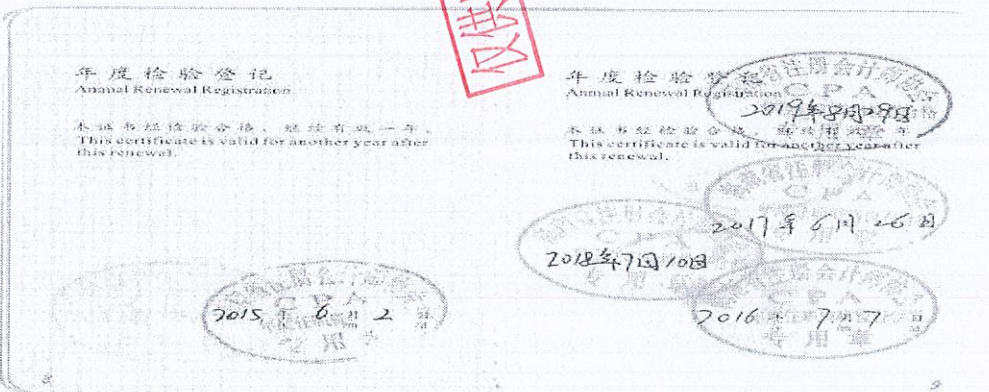 仅供
年度检验登记
Annual Renewal Registration
本证书经检验合格，继续有效一年。
This certificate is valid for another year after
this renewal.
2015 年 6 月 2 日
8
年度检验登记
Annual Renewal Registration
省注册会计师协会
CPA
2019年8月29日
专用章
本证书经检验合格，继续有效一年
This certificate is valid for another year after
this renewal.
省注册会计师协会
CPA
2017年6月26日
专用章
CPA
2018年7月10日
专用章
注册会计师协会
CPA
2016年7月7日
专用章
9